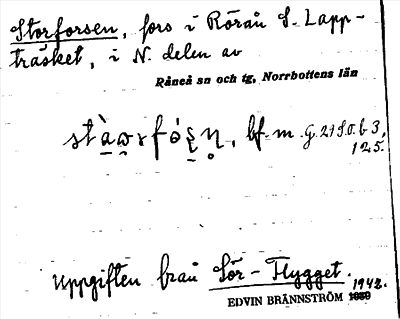 Storforsen, fors i Rörån S. Lapp-
träsket, i N. delen av
Råneå sn och tg, Norrbottens län
bf. m. G. 21 S.O. b 3,
125.
Uppgiften från Sör-Flygget. 1942.
EDVIN BRÄNNSTRÖM